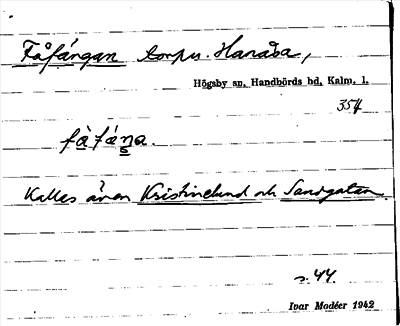 Fåfängan torpn. Hanåsa,
Högsby sn, Handbörds hd, Kalm. l.
354
få̀fáŋa.
Kalles även Kristinelund och Sandgatan.
s. 44.
Ivar Modéer 1942